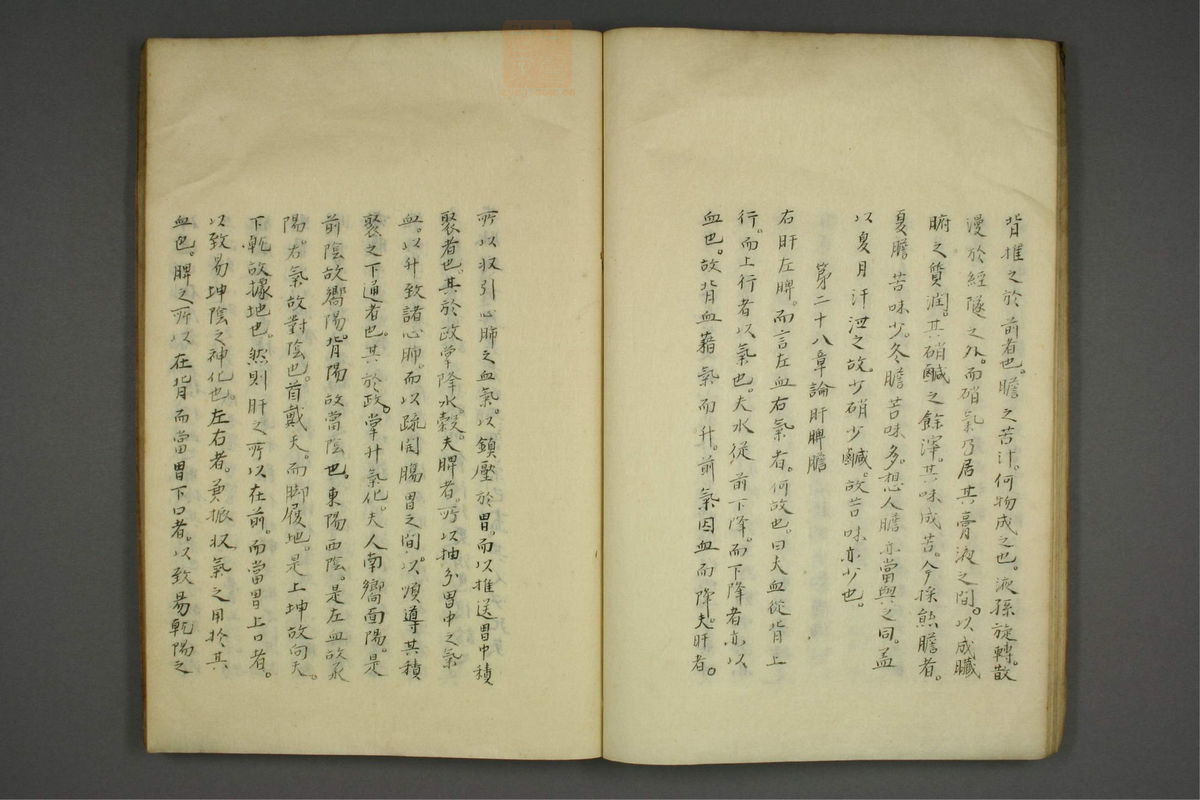 背推之於前者也。膽之苦汁。何物成之也。液孫旋轉。散
漫於經隧之外。而硝氣乃居其膏液之間。以成臟
腑之質潤。其硝鹹之餘滓。其味成苦。今採熊膽者。
夏膽苦味少。冬膽苦味多。想人膽亦當與之同。盖
以夏月汗泄之故。少硝少鹹。故苦味亦少也。
第二十八章論肝脾膽
右肝左脾。而言左血右氣者。何故也。曰夫血從背上
行。而上行者以氣也。夫水從前下降。而下降者亦以
血也。故背血藉氣而升。前氣因血而降。夫肝者。
所以収引心肺之血氣。以鎮壓於胃。而以推送胃中積
聚者也。其於政掌降水穀。夫脾者。所以抽分胃中之氣
血。以升致諸心肺。而以疏闊腸胃之間。以順導其積
聚之下通者也。其於政。掌升氣化。夫人南嚮面陽。是
前陰故嚮陽。背陽故當陰也。東陽西陰。是左血故承
陽。右氣故對陰也。首戴天。而脚履地。是上坤故向天。
下乾故據地也。然則肝之所以在前。而當胃上口者。
以致易坤陰之神化也。左右者。兼振収氣之用於其
血也。脾之所以在背而當胃下口者。以致易乾陽之